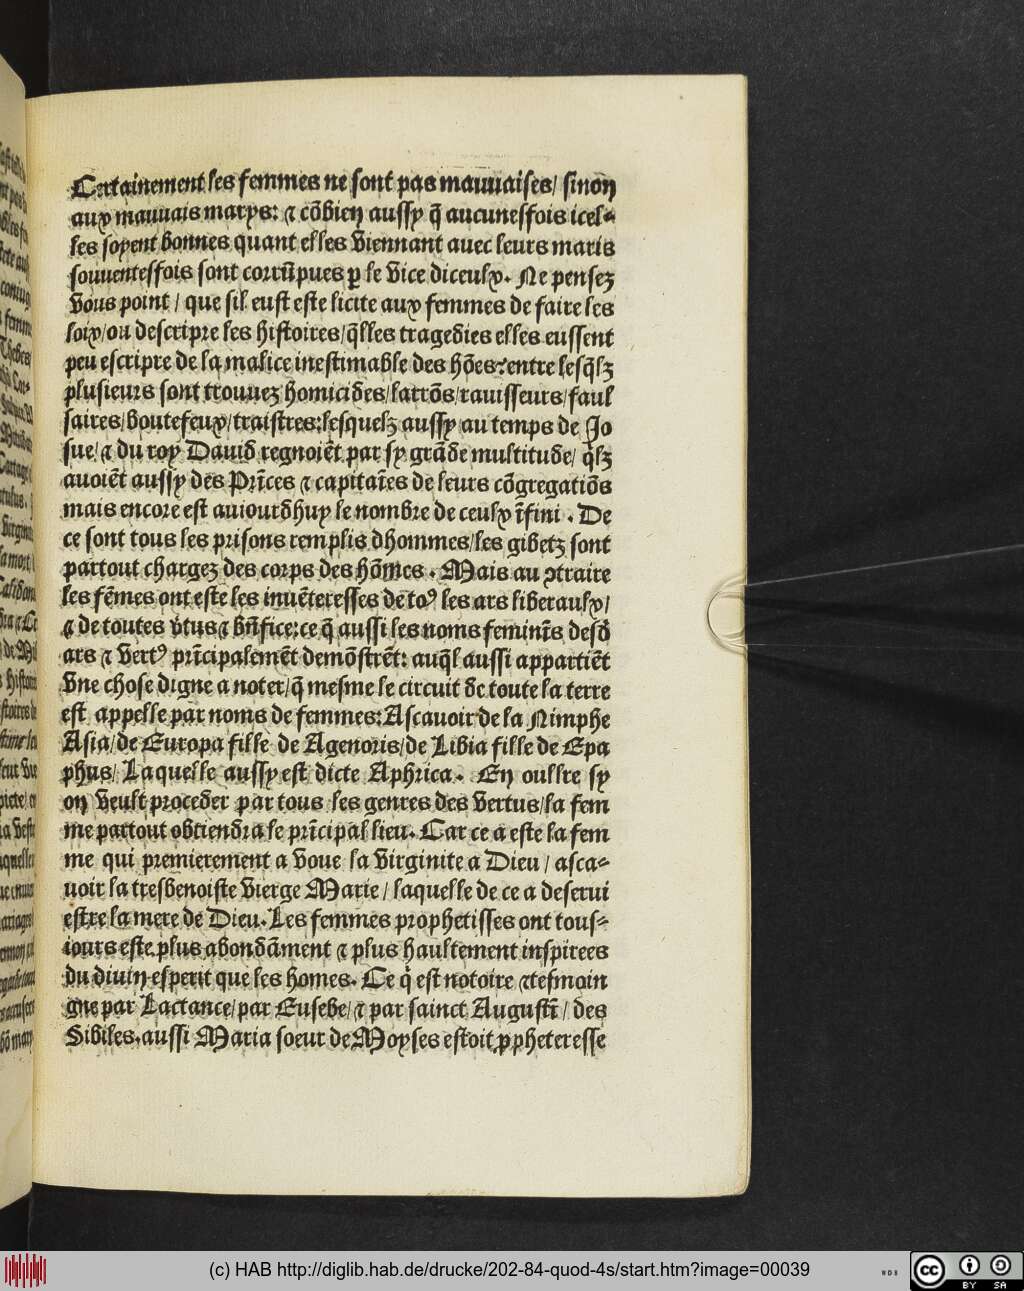 Certainement les femmes ne sont pas mauuaises/ sinon
aux mauuais marys: ⁊ cõbien aussy q̃ aucunesfois icel-
les soyent bonnes quant elles viennant auec leurs maris
souuentesfois sont corrũpues ꝑ le vice diceulx. Ne pensez
vous point / que sil eust este licite aux femmes de faire les
loix/ou descripre les histoires/q̃lles tragedies elles eussent
peu escripre de la malice inestimable des hões? entre lesq̃lz
plusieurs sont trouuez homicides/latrõs/rauisseurs/faul
saires/boutefeux/traistres:lesquelz aussy au temps de Jo
sue/ ⁊ du roy Dauid regnoiẽt par sy grãde multitude/ q̃lz
auoiẽt aussy des Prĩces ⁊ capitaĩes de leurs cõgregatiõs
mais encore est auiourdhuy le nombre de ceulx ĩfini . De
ce sont tous les prisons remplis dhommes/les gibetz sont
partout chargez des corps des hõmes . Mais au ↄtraire
les fẽmes ont este les inuẽteresses de toꝰ les ars liberaulx/
⁊ de toutes ṽtus ⁊ bñfice:ce q̃ aussi les noms feminĩs desd̃
ars ⁊ vertꝰ prĩcipalemẽt demõstrẽt: auq̃l aussi appartiẽt
vne chose digne a noter/q̃ mesme le circuit de toute la terre
est appelle par noms de femmes:Ascauoir de la Nimphe
Asia/de Europa fille de Agenoris/de Libia fille de Epa
phus/ Laquelle aussy est dicte Aphrica. En oultre sy
on veult proceder par tous les genres des vertus/la fem
me partout obtiendra le prĩcipal lieu. Car ce a este la fem
me qui premierement a voue la virginite a Dieu / asca-
uoir la tresbenoiste vierge Marie / laquelle de ce a deserui
estre la mere de Dieu.Les femmes prophetisses ont tous-
iours este plus abondãment ⁊ plus haultement inspirees
du diuin esperit que les homes. Ce q̃ est notoire ⁊tesmoin
gne par Lactance/par Eusebe/⁊ par sainct Augustĩ / des
Sibiles.aussi Maria soeur de Moyses estoit ꝓpheteresse
(c) HAB http://diglib.hab.de/drucke/202-84-quod-4s/start.htm?image=00039
cc BY SA